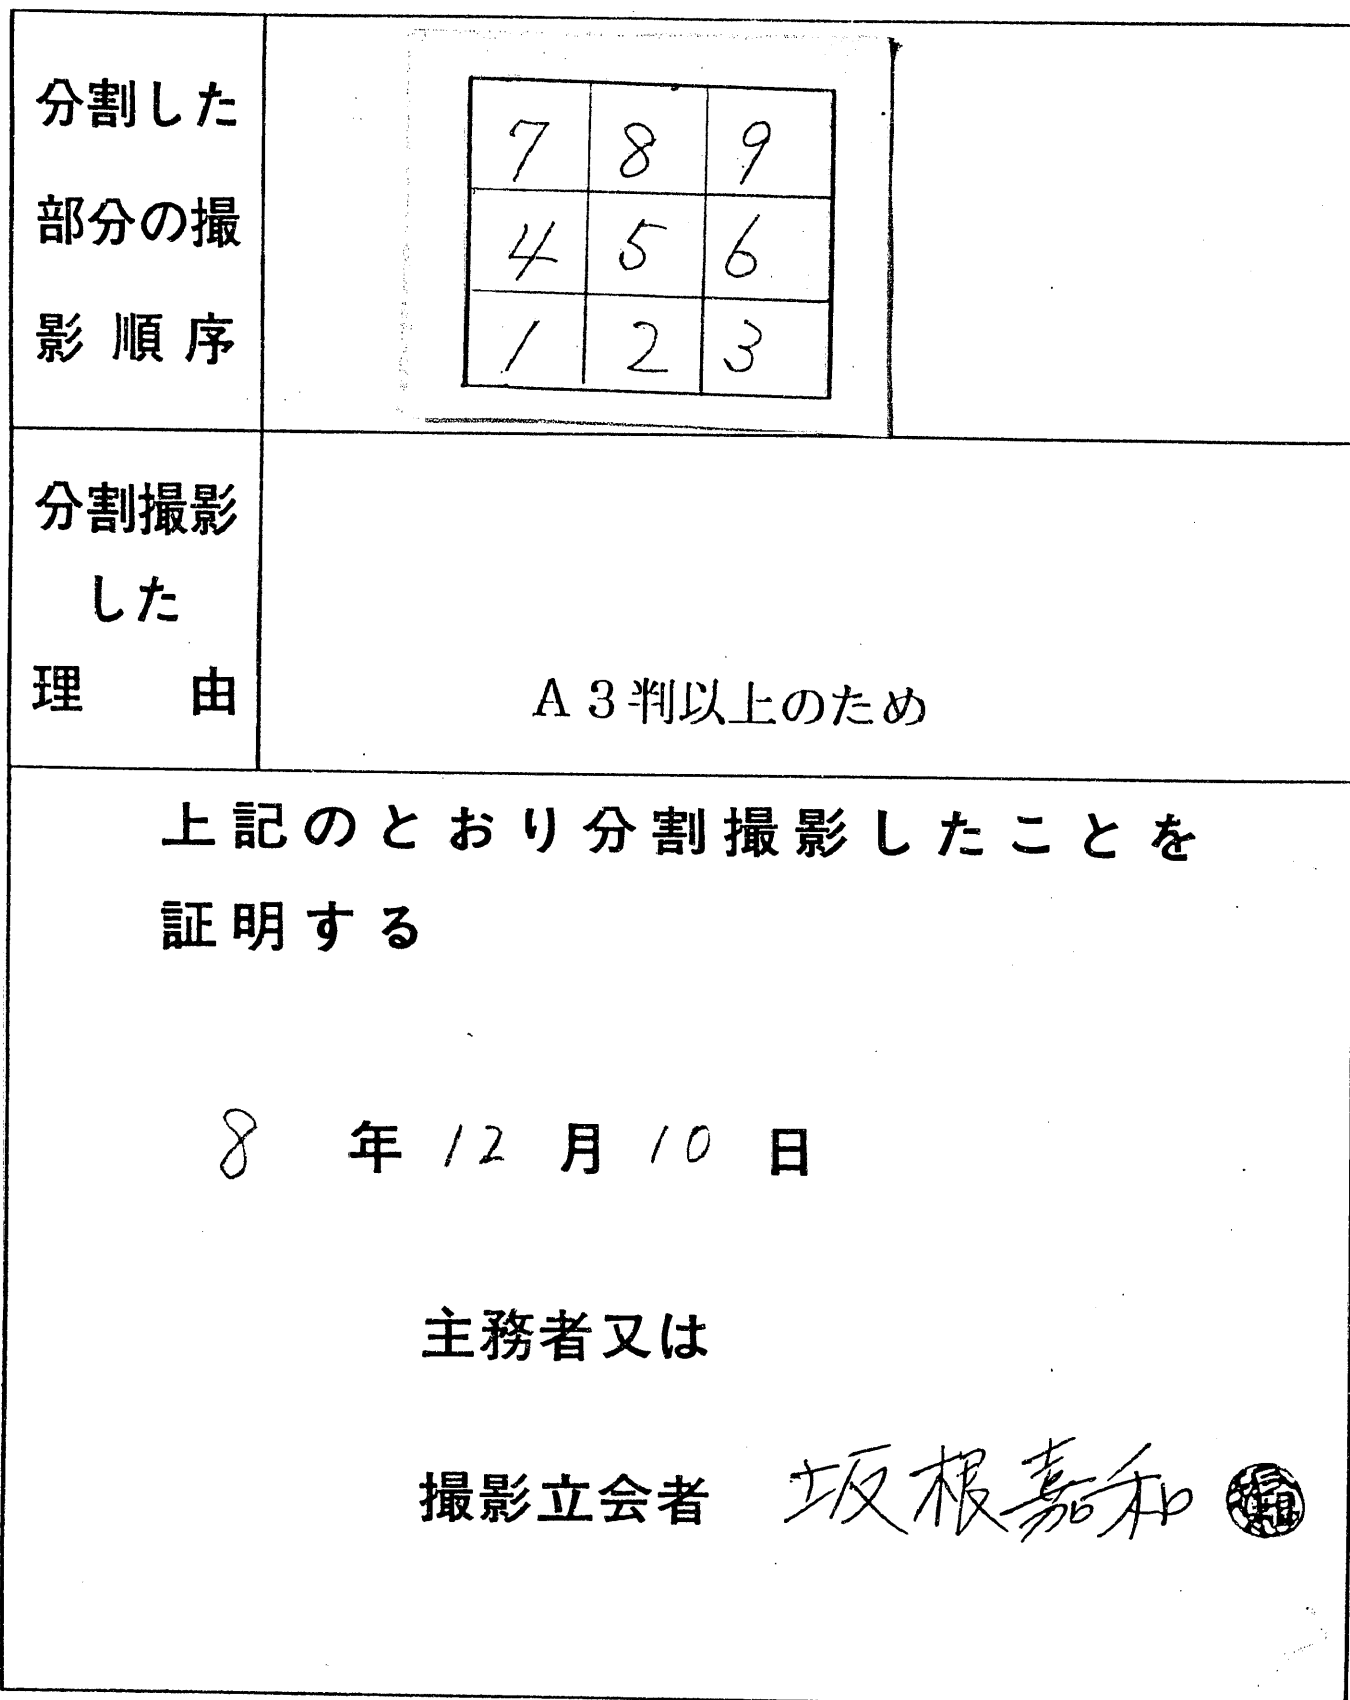 分割した
部分の撮
影順序
7 8 9
4 5 6
1 2 3
分割撮影
した
理由
A3判以上のため
上記のとおり分割撮影したことを
証明する
8年12月10日
主務者又は
撮影立会者 坂根嘉和